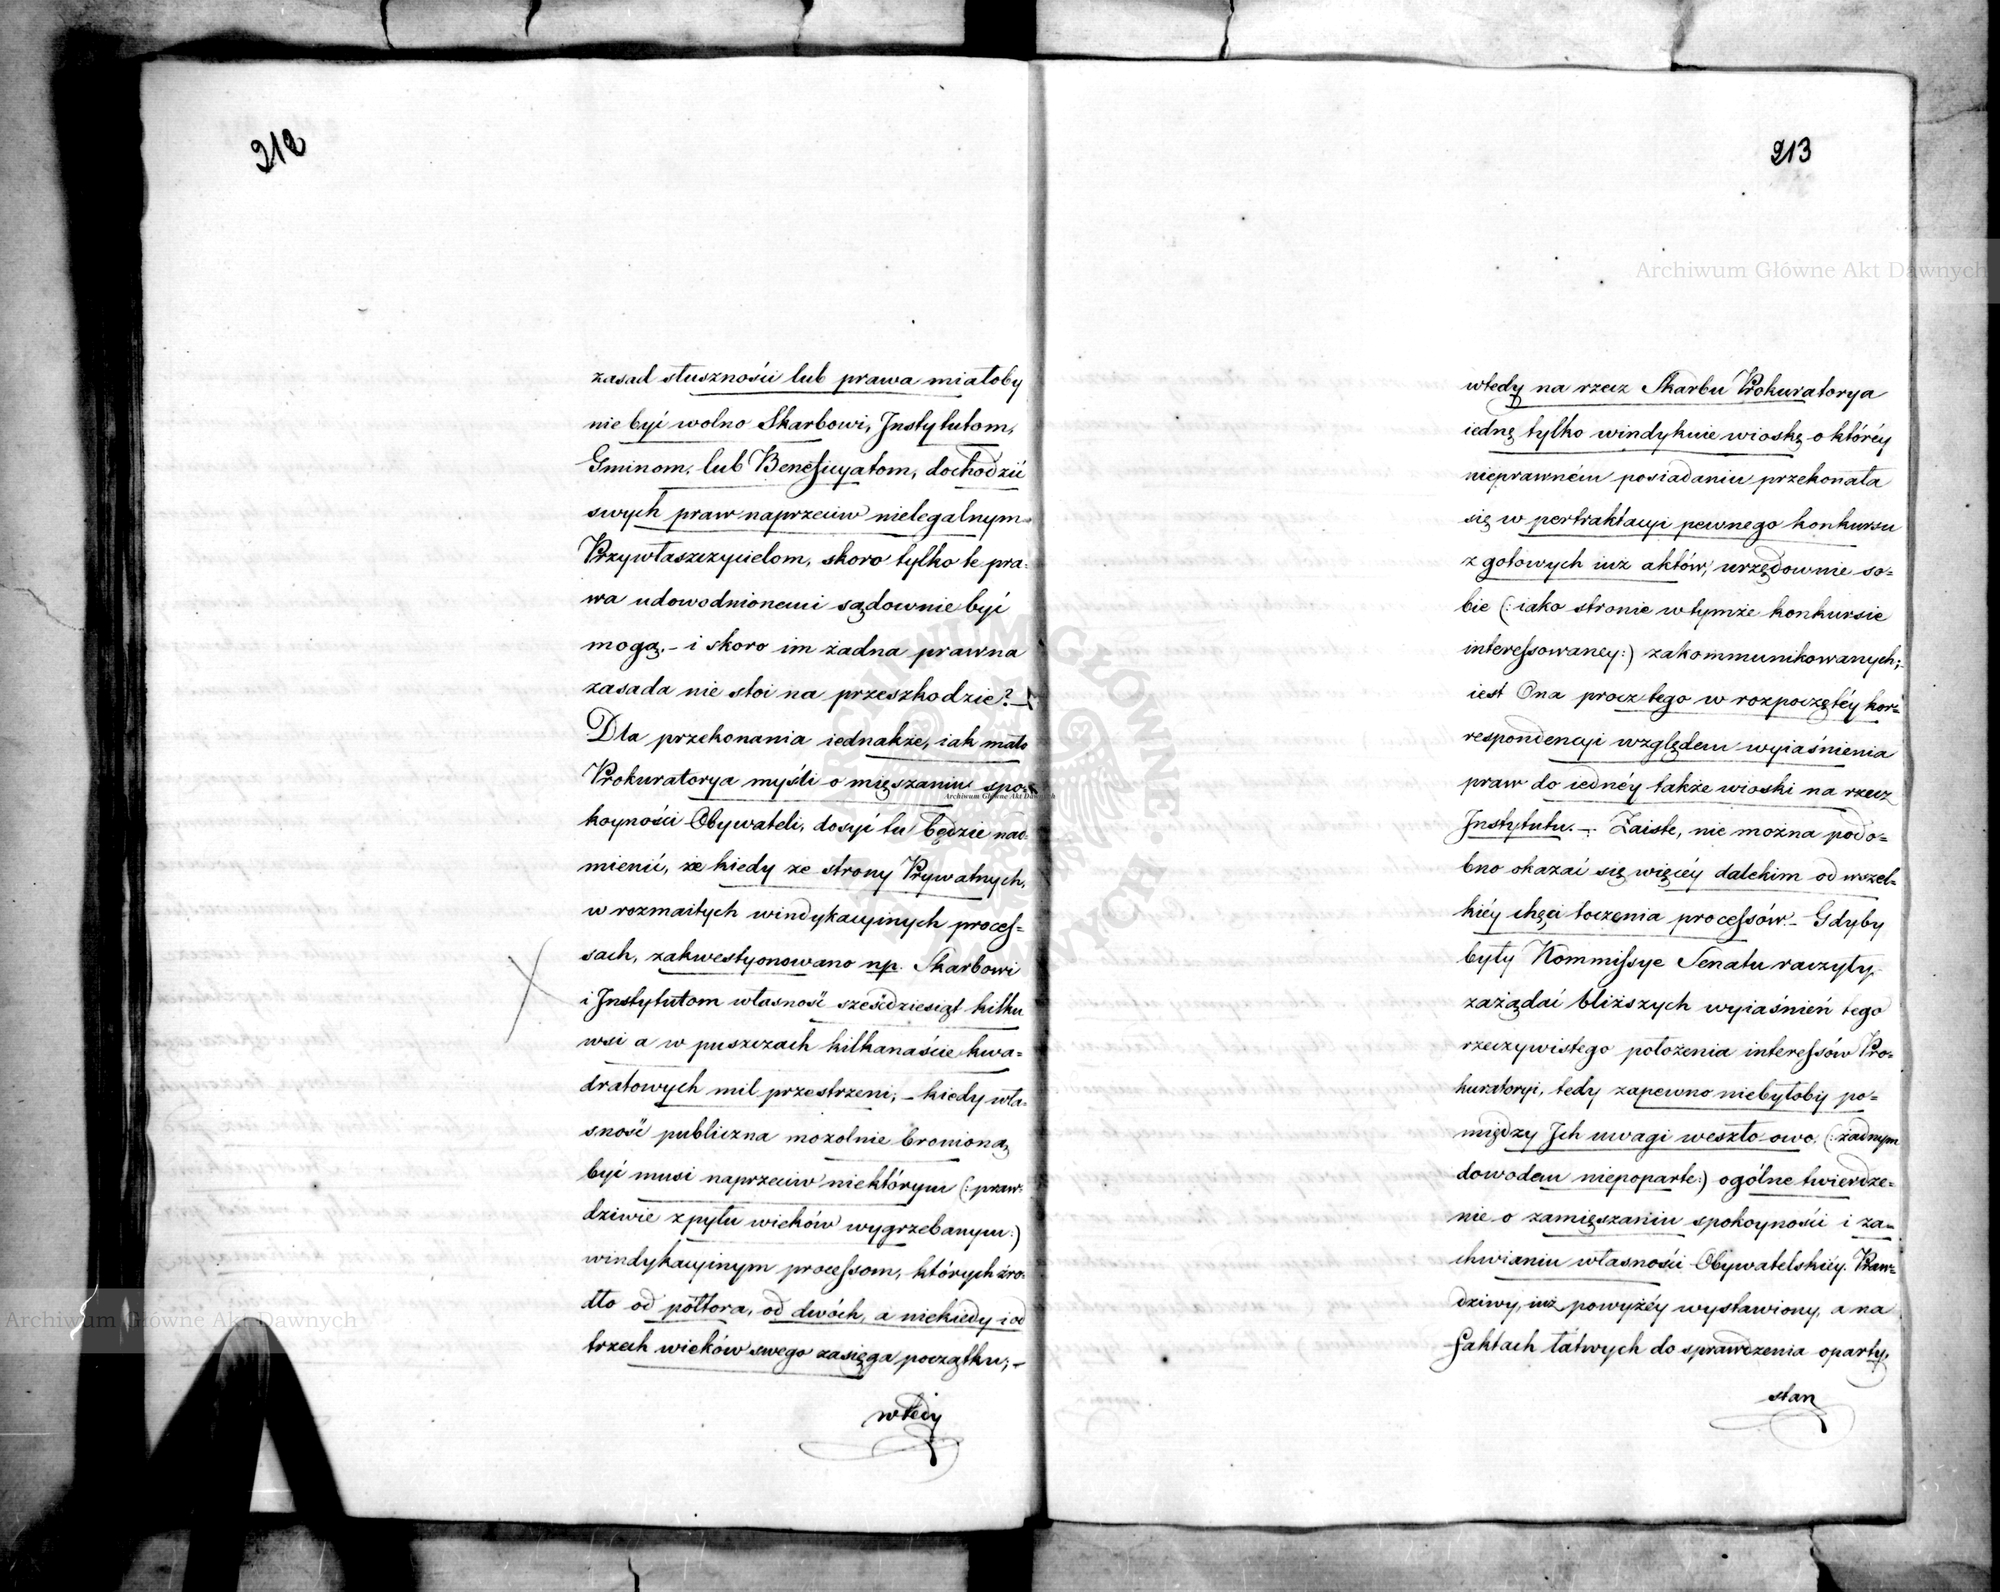 212
zasad słuszności lub prawa miałoby
nie być wolno Skarbowi, Instytutom,
Gminom, lub Beneficyatom, dochodzić
swych praw naprzeciw nielegalnym
Przywłaszczycielom, skoro tylko te pra-
wa udowodnionemi sądownie być
mogą. – i skoro im żadna prawna
zasada nie stoi na przeszkodzie? –
Dla przekonania iednakże, iak mało
Prokuratorya myśli o mięszaniu spo-
koyności Obywateli, dosyć tu będzie nad-
mienić, że kiedy ze strony Prywatnych,
w rozmaitych windykacyinych process-
sach, zakwestyonowano np. Skarbowi
i Instytutom własność sześćdziesiąt kilku
wsi a w puszczach kilkanaście kwa-
dratowych mil przestrzeni; – kiedy wła-
sność publiczna mozolnie bronioną
być musi naprzeciw niektórym (: praw-
dziwie z pyłu wieków wygrzebanym :)
windykacyinym processom, których źro-
dło od półtora, od dwóch, a niekiedy i od
trzech wieków swego zasięga początku; –
wtedy
213
wtedy na rzecz Skarbu Prokuratorya
iednę tylko windykuie wioskę o któréy
nieprawném posiadaniu przekonała
się w pertraktacyi pewnego konkursu
z gotowych iuż aktów, urzędownie so-
bie (: iako stronie w tymże konkursie
interessowaney :) zakommunikowanych;
iest Ona procz tego w rozpoczętéy kor-
respondencyi względem wyiaśnienia
praw do iednéy także wioski na rzecz
Instytutu. – Zaiste, nie można podo-
bno okazać się więcéy dalekim od wszel-
kiéy chęci toczenia processów. – Gdyby
były Kommissye Senatu raczyły
zażądać bliższych wyiaśnień tego
rzeczywistego położenia interessów Pro-
kuratoryi, tedy zapewno niebyłoby po-
między Ich uwagi weszło owo, (: żadnym
dowodem niepoparte :) ogólne twierdze-
nie o zamięszaniu spokoyności i za-
chwianiu własności Obywatelskiéy. Praw-
dziwy, iuż powyżéy wystawiony, a na
faktach łatwych do sprawdzenia oparty,
stan
Archiwum Główne Akt Dawnych
Archiwum Główne Akt Dawnych
Archiwum Główne Akt Dawnych